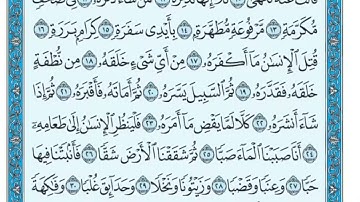 مُّكَرَّمَةٍ ١٣ مَّرْفُوعَةٍ مُّطَهَّرَةٍ ١٤ بِأَيْدِى سَفَرَةٍ ١٥ كِرَامٍۭ بَرَرَةٍ ١٦
قُتِلَ ٱلْإِنسَٰنُ مَآ أَكْفَرَهُۥ ١٧ مِنْ أَىِّ شَىْءٍ خَلَقَهُۥ ١٨ مِن نُّطْفَةٍ
خَلَقَهُۥ فَقَدَّرَهُۥ ١٩ ثُمَّ ٱلسَّبِيلَ يَسَّرَهُۥ ٢٠ ثُمَّ أَمَاتَهُۥ فَأَقْبَرَهُۥ ٢١ ثُمَّ إِذَا
شَآءَ أَنشَرَهُۥ ٢٢ كَلَّا لَمَّا يَقْضِ مَآ أَمَرَهُۥ ٢٣ فَلْيَنظُرِ ٱلْإِنسَٰنُ إِلَىٰ طَعَامِهِۦٓ
٢٤ أَنَّا صَبَبْنَا ٱلْمَآءَ صَبًّا ٢٥ ثُمَّ شَقَقْنَا ٱلْأَرْضَ شَقًّا ٢٦ فَأَنۢبَتْنَا فِيهَا
حَبًّا ٢٧ وَعِنَبًا وَقَضْبًا ٢٨ وَزَيْتُونًا وَنَخْلًا ٢٩ وَحَدَآئِقَ غُلْبًا ٣٠ وَفَٰكِهَةً